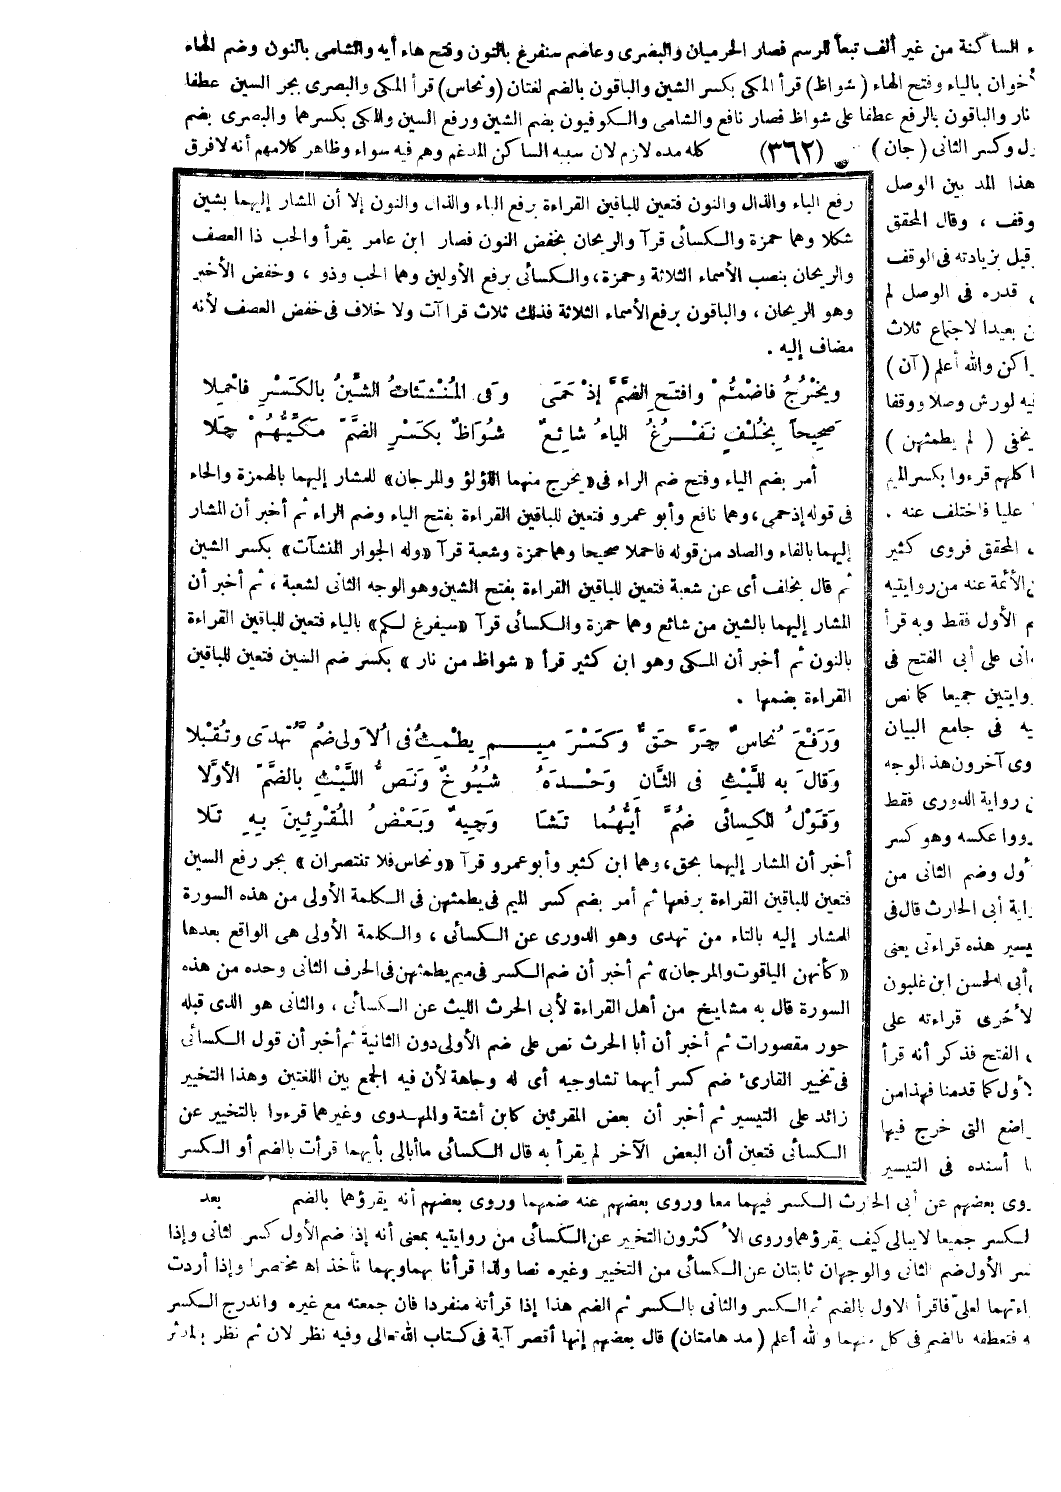 ء الساكنة من غير ألف تبعاً للرسم فصار الحرميان والبصرى وعاصم سنفرغ بالنون وفتح هاء أيه والشامى بالنون وضم الهاء
خوان بالياء وفتح الهاء (شواظ) قرأ المكى بكسر الشين والباقون بالضم لغتان (ونحاس) قرأ المكى والبصرى بجر السين عطفا
نار والباقون بالرفع عطفا على شواظ فصار نافع والشامى والكوفيون بضم الشين ورفع السين والمكى بكسرهما والبصرى بضم
ول وكسر الثانى (جان) (٣٦٢) كله مده لازم لان سببه الساكن المدغم وهم فيه سواء وظاهر كلامهم أنه لا فرق
هذا المد بين الوصل
وقف ، وقال المحقق
قيل بزيادته فى الوقف
قدره فى الوصل لم
ن بعيدا لاجتماع ثلاث
اكن والله أعلم (آن)
يه لورش وصلا ووقفا
يخفى (لم يطمثهن)
ا كلهم قرءوا بكسر الميم
عليا فاختلف عنه .
، المحقق فروى كثير
ن الأئمة عنه من روايتيه
م الأول فقط وبه قرأ
انى على أبى الفتح فى
وايتين جميعا كما نص
يه فى جامع البيان
وى آخرون هذا الوجه
ن رواية الدورى فقط
ووا عكسه وهو كسر
أول وضم الثانى من
اية أبى الحارث قال فى
يسير هذه قراءتى يعنى
أبى الحسن ابن غلبون
لأخرى قراءته على
، الفتح فذكر أنه قرأ
لأول كما قدمنا فهذا من
اضع التى خرج فيها
ا أسنده فى التيسير
رفع الباء والذال والنون فتعين للباقين القراءة برفع الباء والذال والنون إلا أن المشار إليهما بشين
شكلا وهما حمزة والكسائى قرآ والريحان بخفض النون فصار ابن عامر يقرأ والحب ذا العصف
والريحان بنصب الأسماء الثلاثة وحمزة، والكسائى برفع الأولين وهما الحب وذو ، وخفض الأخير
وهو الريحان ، والباقون برفع الأسماء الثلاثة فذلك ثلاث قراآت ولا خلاف فى خفض العصف لأنه
مضاف إليه .
ويَخْرُجُ فَاضْمُمْ وافتَحِ الضَّمَّ إذْ حَمَى وفى المُنْشَئَاتُ الشِّينُ بالكَسْرِ فَاحْمِلا
صَحِيحاً بِخُلْفٍ نَفْرُغُ الياءُ شائِعٌ شُوَاظٌ بكَسْرِ الضَّمِّ مَكِّيُّهُمْ جَلَا
أمر بضم الياء وفتح ضم الراء فى «يخرج منهما اللؤلؤ والمرجان» للمشار إليهما بالهمزة والحاء
فى قوله إذ حمى، وهما نافع وأبو عمرو فتعين للباقين القراءة بفتح الياء وضم الراء ثم أخبر أن المشار
إليهما بالفاء والصاد من قوله فاحملا صحيحا وهما حمزة وشعبة قرآ «وله الجوار المنشآت» بكسر الشين
ثم قال بخلف أى عن شعبة فتعين للباقين القراءة بفتح الشين وهو الوجه الثانى لشعبة ، ثم أخبر أن
المشار إليهما بالشين من شائع وهما حمزة والكسائى قرآ «سيفرغ لكم» بالياء فتعين للباقين القراءة
بالنون ثم أخبر أن المكى وهو ابن كثير قرأ «شواظ من نار» بكسر ضم الشين فتعين للباقين
القراءة بضمها .
وَرَفْعَ نُحَاسٌ جَرَّ حَقٌّ وَكَسْرَ مِيــمِ يطْمِثُ فى الُاولى ضُمَّ تُهْدَى وتُقْبَلا
وَقَالَ به للَّيْثِ فى الثَّانِ وَحْدَهُ شُيُوخٌ وَنَصُّ اللَّيْثِ بالضَّمِّ الأوَّلا
وَقَوْلُ الكِسائى ضُمَّ أيَّهُما تَشَا وَجِيهٌ وَبَعْضُ المُقْرِئِينَ بِهِ تَلَا
أخبر أن المشار إليهما بحق، وهما ابن كثير وأبو عمرو قرآ «ونحاس فلا تنتصران» بجر رفع السين
فتعين للباقين القراءة برفعها ثم أمر بضم كسر الميم فى يطمثهن فى الكلمة الأولى من هذه السورة
للمشار إليه بالتاء من تهدى وهو الدورى عن الكسائى ، والكلمة الأولى هى الواقع بعدها
«كأنهن الياقوت والمرجان» ثم أخبر أن ضم الكسر فى ميم يطمثهن فى الحرف الثانى وحده من هذه
السورة قال به مشايخ من أهل القراءة لأبى الحرث الليث عن الكسائى ، والثانى هو الذى قبله
حور مقصورات ثم أخبر أن أبا الحرث نص على ضم الأولى دون الثانية ثم أخبر أن قول الكسائى
فى تخيير القارئ ضم كسر أيهما تشا وجيه أى له وجاهة لأن فيه الجمع بين اللغتين وهذا التخيير
زائد على التيسير ثم أخبر أن بعض المقرئين كابن أشتة والمهدوى وغيرهما قرءوا بالتخيير عن
الكسائى فتعين أن البعض الآخر لم يقرأ به قال الكسائى ما أبالى بأيهما قرأت بالضم أو الكسر
وى بعضهم عن أبى الحارث الكسر فيهما معا وروى بعضهم عنه ضمهما وروى بعضهم أنه يقرؤهما بالضم بعد
لكسر جميعا لا يبالى كيف يقرؤهما وروى الأكثرون التخيير عن الكسائى من روايتيه بمعنى أنه إذا ضم الأول كسر الثانى وإذا
سر الأول ضم الثانى والوجهان ثابتان عن الكسائى من التخيير وغيره نصا ولذا قرأنا بهما وبهما نأخذ اه مختصرا وإذا أردت
اءتهما لعلىّ فاقرأ الاول بالضم ثم الكسر والثانى بالكسر ثم الضم هذا إذا قرأته منفردا فان جمعته مع غيره واندرج الكسر
ه فتعطفه بالضم فى كل منهما والله أعلم (مدهامتان) قال بعضهم إنها أقصر آية فى كتاب الله تعالى وفيه نظر لان ثم نظر بالمدثر